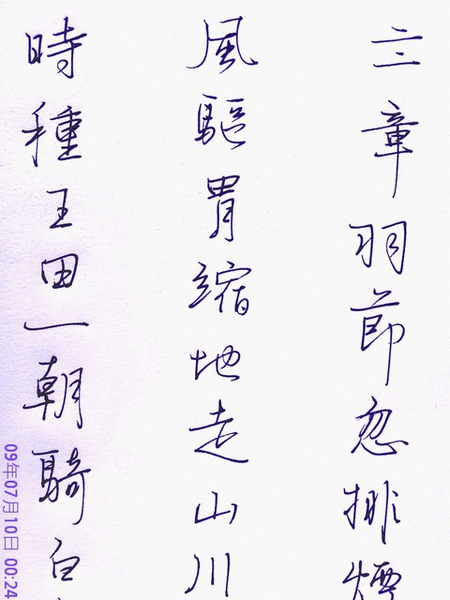 三章羽節忽排煙
風驅胃縮地走山川
時種王田一朝騎白
09年07月10日 00:24